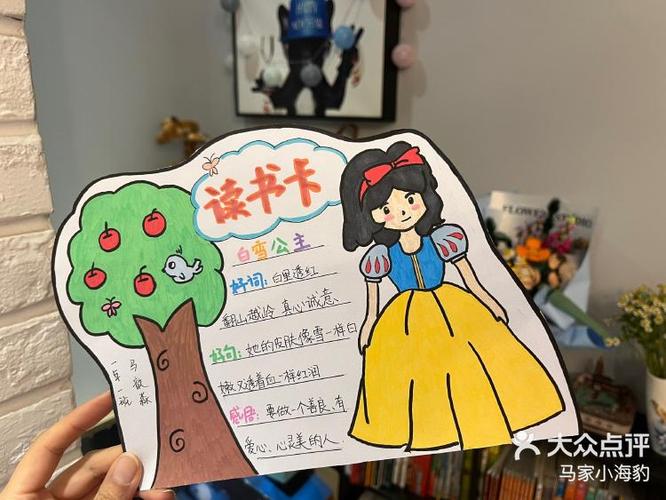 读书卡
白雪公主
好词:白里透红
翻山越岭 真心诚意
好句:她的皮肤像雪一样白
嫩又透着血一样红润
感悟:要做一个善良、有
爱心、心灵美的人.
一年一班
大众点评
马家小海豹